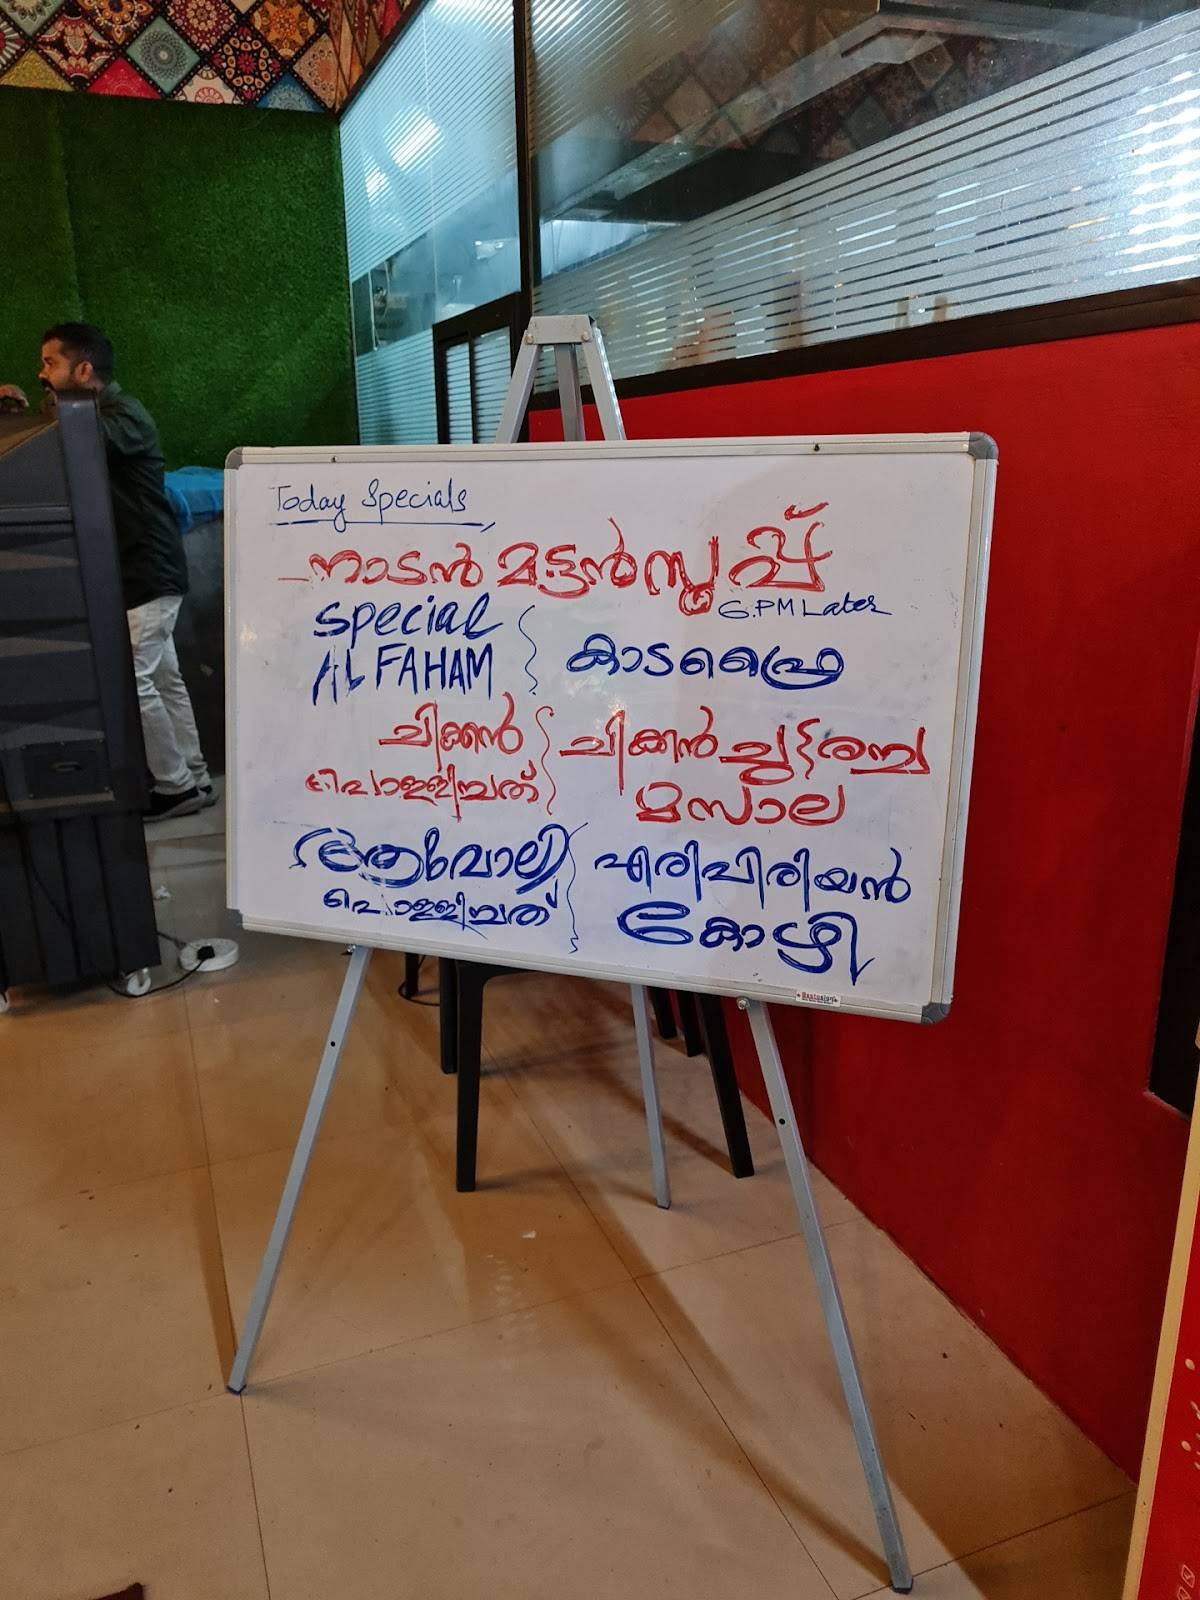 Today Specials
നാടൻ മട്ടൻ സൂപ്പ്
6.PM Later
Special
AL FAHAM
കാടഫ്രൈ
ചിക്കൻ
പൊള്ളിച്ചത്
ചിക്കൻ ചുട്ടരച്ച
മസാല
ആവോലി
പൊള്ളിച്ചത്
എരിപിരിയൻ
കോഴി